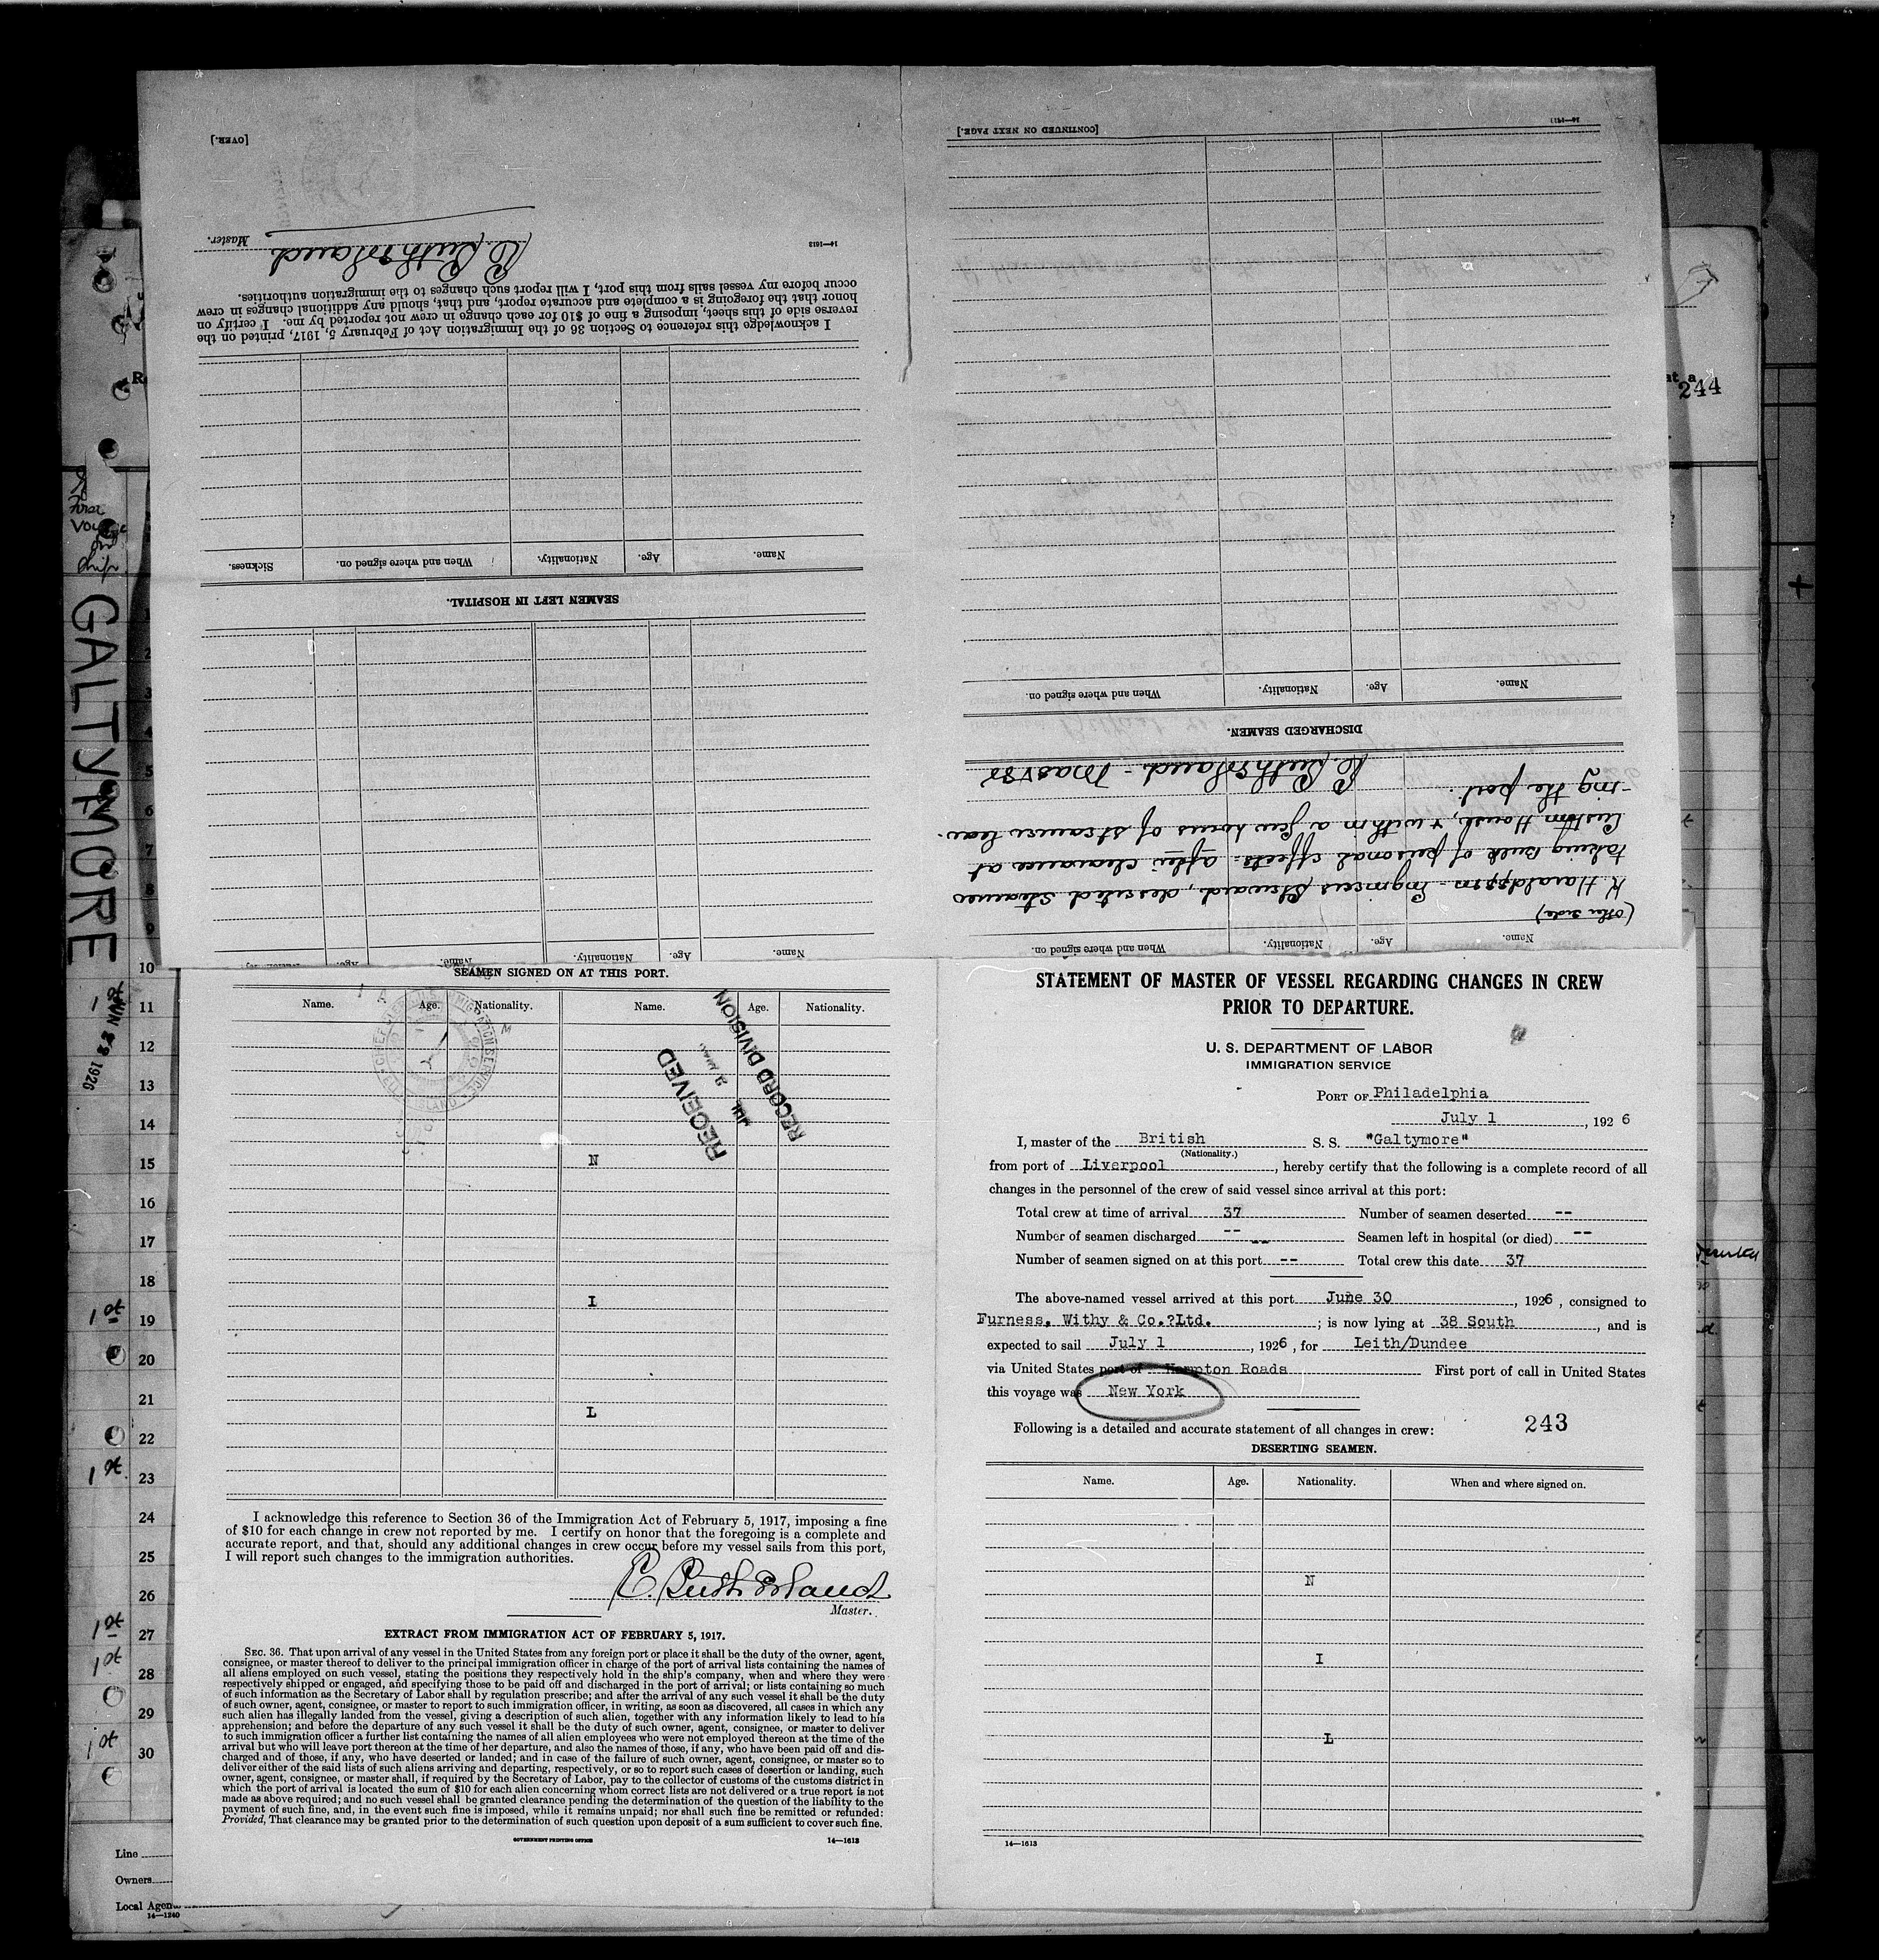 [OVER.]
Master.
14—1613
I acknowledge this reference to Section 36 of the Immigration Act of February 5, 1917, printed on the
reverse side of this sheet, imposing a fine of $10 for each change in crew not reported by me. I certify on
honor that the foregoing is a complete and accurate report, and that, should any additional changes in crew
occur before my vessel sails from this port, I will report such changes to the immigration authorities.
Name. Age. Nationality. When and where signed on. Sickness.
SEAMEN LEFT IN HOSPITAL.
Name. Age. Nationality. Name. Age. Nationality.
[CONTINUED ON NEXT PAGE.]
Name. Age. Nationality. When and where signed on.
(other side)
K Haraldssen - Engineers Steward, deserted steamer
taking bulk of personal effects. after clearance at
Custom House, & within a few hours of steamer leav-
-ing the port.
C. Sutherland - Master
DISCHARGED SEAMEN.
Name. Age. Nationality. When and where signed on.
244
First
Voyage
Ship
GALTYMORE
JUN 22 1926
5
6
7
8
9
10
11
12
13
14
15
16
17
18
1st 19
20
21
22
1st 23
24
25
26
1st 27
1st 28
29
1st 30
Line
Owners
Local Agents
14—1240
SEAMEN SIGNED ON AT THIS PORT.
Name. Age. Nationality. Name. Age. Nationality.
RECEIVED
JUL
RECORD DIVISION
N
I
L
I acknowledge this reference to Section 36 of the Immigration Act of February 5, 1917, imposing a fine
of $10 for each change in crew not reported by me. I certify on honor that the foregoing is a complete and
accurate report, and that, should any additional changes in crew occur before my vessel sails from this port,
I will report such changes to the immigration authorities.
C. Sutherland
Master.
EXTRACT FROM IMMIGRATION ACT OF FEBRUARY 5, 1917.
SEC. 36. That upon arrival of any vessel in the United States from any foreign port or place it shall be the duty of the owner, agent,
consignee, or master thereof to deliver to the principal immigration officer in charge of the port of arrival lists containing the names of
all aliens employed on such vessel, stating the positions they respectively hold in the ship's company, when and where they were
respectively shipped or engaged, and specifying those to be paid off and discharged in the port of arrival; or lists containing so much
of such information as the Secretary of Labor shall by regulation prescribe; and after the arrival of any such vessel it shall be the duty
of such owner, agent, consignee, or master to report to such immigration officer, in writing, as soon as discovered, all cases in which any
such alien has illegally landed from the vessel, giving a description of such alien, together with any information likely to lead to his
apprehension; and before the departure of any such vessel it shall be the duty of such owner, agent, consignee, or master to deliver
to such immigration officer a further list containing the names of all alien employees who were not employed thereon at the time of the
arrival but who will leave port thereon at the time of her departure, and also the names of those, if any, who have been paid off and dis-
charged and of those, if any, who have deserted or landed; and in case of the failure of such owner, agent, consignee, or master so to
deliver either of the said lists of such aliens arriving and departing, respectively, or so to report such cases of desertion or landing, such
owner, agent, consignee, or master shall, if required by the Secretary of Labor, pay to the collector of customs of the customs district in
which the port of arrival is located the sum of $10 for each alien concerning whom correct lists are not delivered or a true report is not
made as above required; and no such vessel shall be granted clearance pending the determination of the question of the liability to the
payment of such fine, and, in the event such fine is imposed, while it remains unpaid; nor shall such fine be remitted or refunded:
Provided, That clearance may be granted prior to the determination of such question upon deposit of a sum sufficient to cover such fine.
GOVERNMENT PRINTING OFFICE 14—1613
STATEMENT OF MASTER OF VESSEL REGARDING CHANGES IN CREW
PRIOR TO DEPARTURE.
U. S. DEPARTMENT OF LABOR
IMMIGRATION SERVICE
PORT OF Philadelphia
July 1, 1926
I, master of the British S. S. "Galtymore"
(Nationality.)
from port of Liverpool, hereby certify that the following is a complete record of all
changes in the personnel of the crew of said vessel since arrival at this port:
Total crew at time of arrival 37 Number of seamen deserted --
Number of seamen discharged -- -- Seamen left in hospital (or died) --
Number of seamen signed on at this port -- Total crew this date 37
The above-named vessel arrived at this port June 30, 1926, consigned to
Furness, Withy & Co.?Ltd. ; is now lying at 38 South, and is
expected to sail July 1, 1926, for Leith/Dundee
via United States port of Hampton Roads First port of call in United States
this voyage was New York
Following is a detailed and accurate statement of all changes in crew: 243
DESERTING SEAMEN.
Name. Age. Nationality. When and where signed on.
N
I
L
14—1613